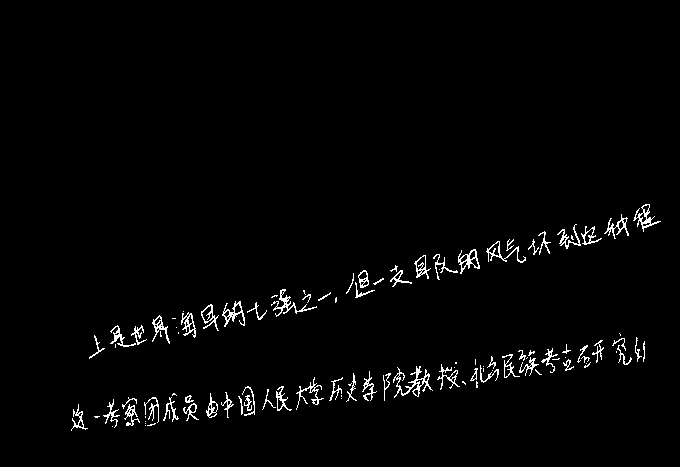 上是世界海军的七强之一,但一支军队的风气坏到这种程
这一考察团成员由中国人民大学历史学院教授、北方民族考古研究所